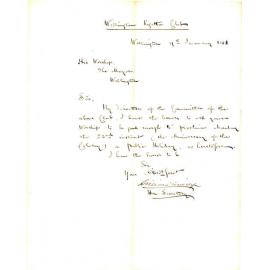 Wellington Club
Wellington January
His Worship
The Mayor
Wellington
Sir,
By direction of the Committee of the
above Club, I have the honor to ask your
Worship to be good enough to proclaim Monday
the 22nd instant, (the Anniversary of the
Colony) a Public Holiday, as heretofore.
I have the honor to be
Sir
Your